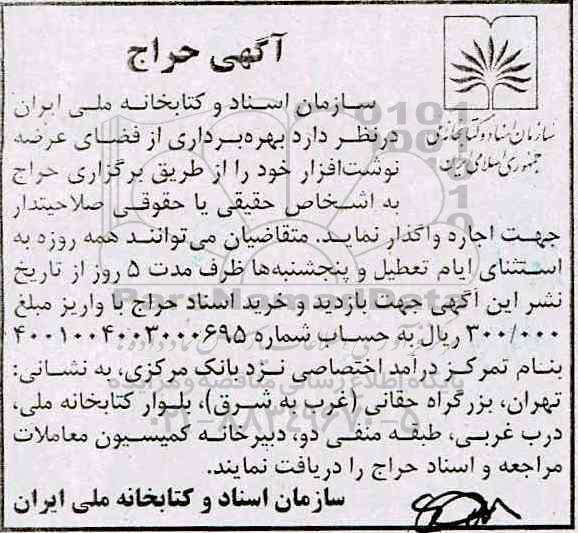 آگهی حراج
سازمان اسناد و کتابخانه ملی
جمهوری اسلامی ایران
سازمان اسناد و کتابخانه ملی ایران
درنظر دارد بهره‌برداری از فضای عرضه
نوشت‌افزار خود را از طریق برگزاری حراج
به اشخاص حقیقی یا حقوقی صلاحیتدار
جهت اجاره واگذار نماید. متقاضیان می‌توانند همه روزه به
استثنای ایام تعطیل و پنجشنبه‌ها ظرف مدت ۵ روز از تاریخ
نشر این آگهی جهت بازدید و خرید اسناد حراج با واریز مبلغ
۳۰۰/۰۰۰ ریال به حساب شماره ۴۰۰۱۰۰۴۰۰۳۰۰۰۶۹۵
بنام تمرکز درآمد اختصاصی نزد بانک مرکزی، به نشانی:
تهران، بزرگراه حقانی (غرب به شرق)، بلوار کتابخانه ملی،
درب غربی، طبقه منفی دو، دبیرخانه کمیسیون معاملات
مراجعه و اسناد حراج را دریافت نمایند.
سازمان اسناد و کتابخانه ملی ایران
پایگاه اطلاع رسانی مناقصه و مزایده
۰۲۱-۸۸۳۴۹۶۷۰-۵